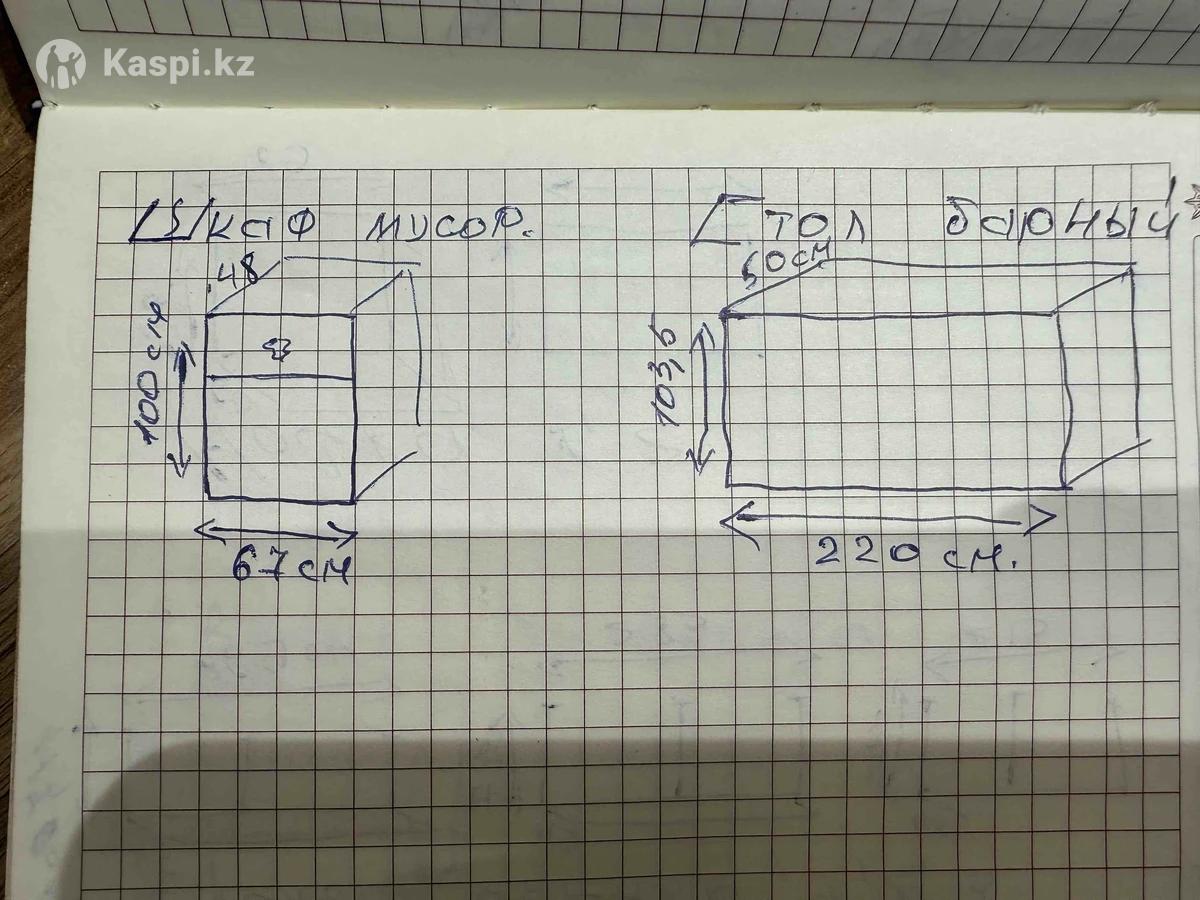 Kaspi.kz
Шкаф мусор.
48
100 см
67 см
Стол барный
60 см
103,5
220 см.